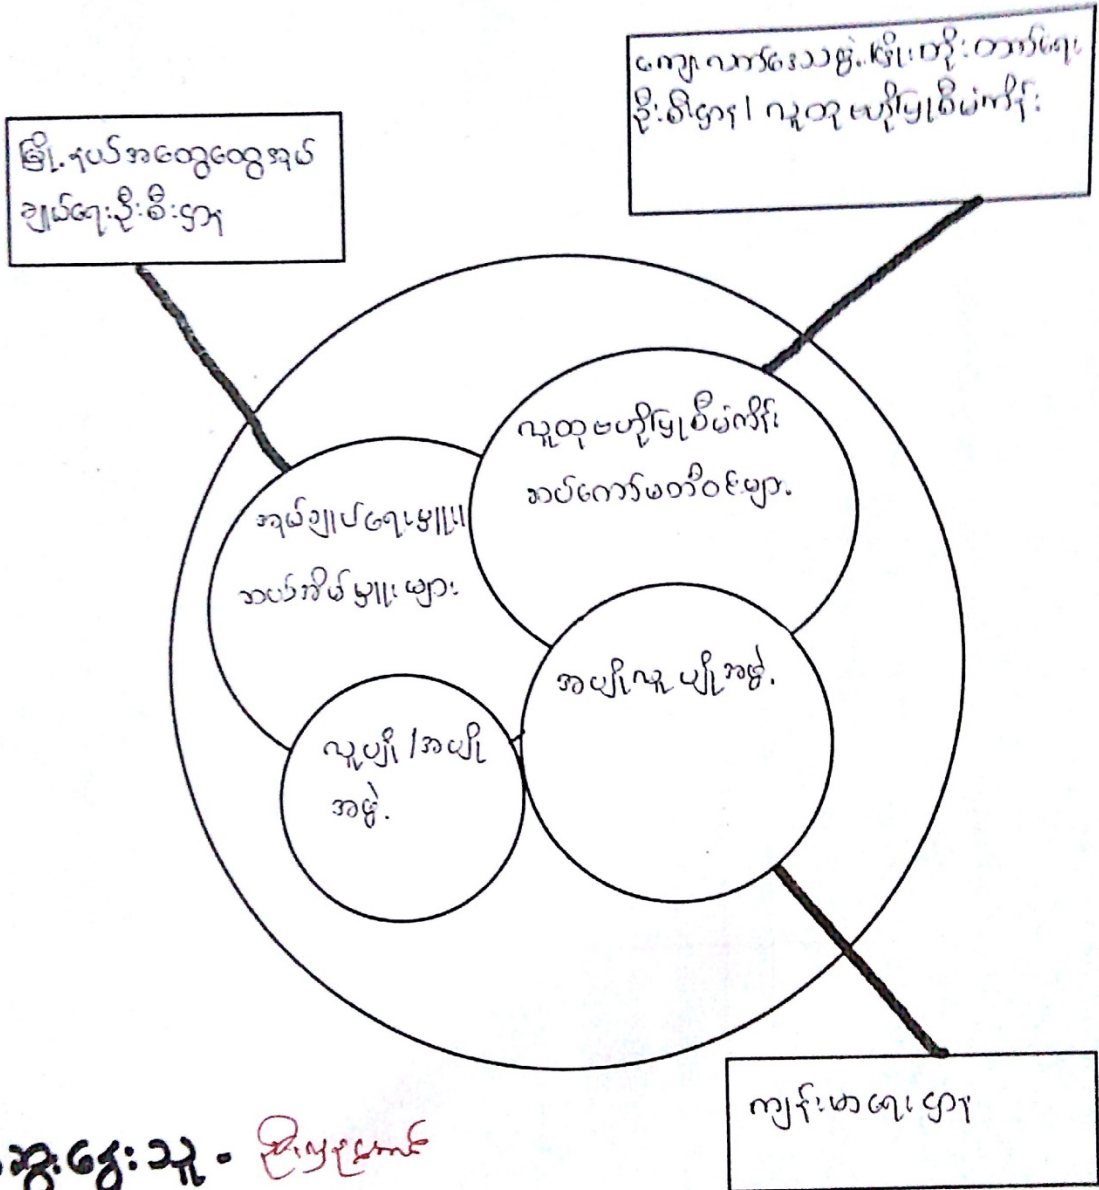 မြို့နယ်အထွေထွေအုပ်
ချုပ်ရေးဦးစီးဌာန
ကျေးလက်ဒေသဖွံ့ဖြိုးတိုးတက်ရေး
ဦးစီးဌာန/ လူထုဗဟိုပြုစီမံကိန်း
လူထုဗဟိုပြုစီမံကိန်း
ကော်မတီဝင်များ
အုပ်ချုပ်ရေးမှူး၊
ဆယ်အိမ်မှူးများ
အပျိုလူပျိုအဖွဲ့
လူပျို/အပျို
အဖွဲ့
ကျန်းမာရေးဌာန
ဆွေးနွေးသူ -